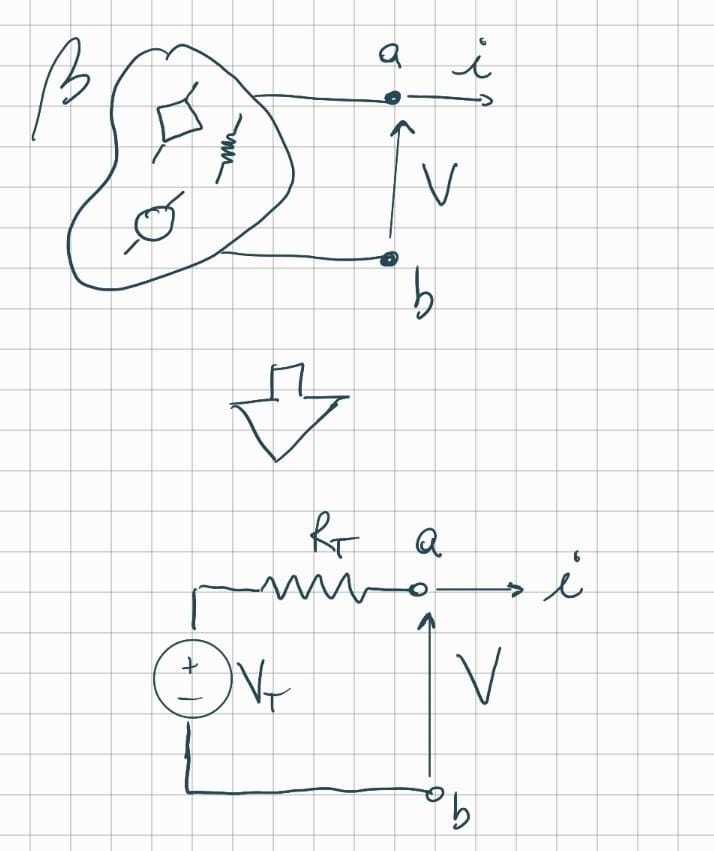 β
a i
V
b
R_T a
i
+
− V_T
V
b